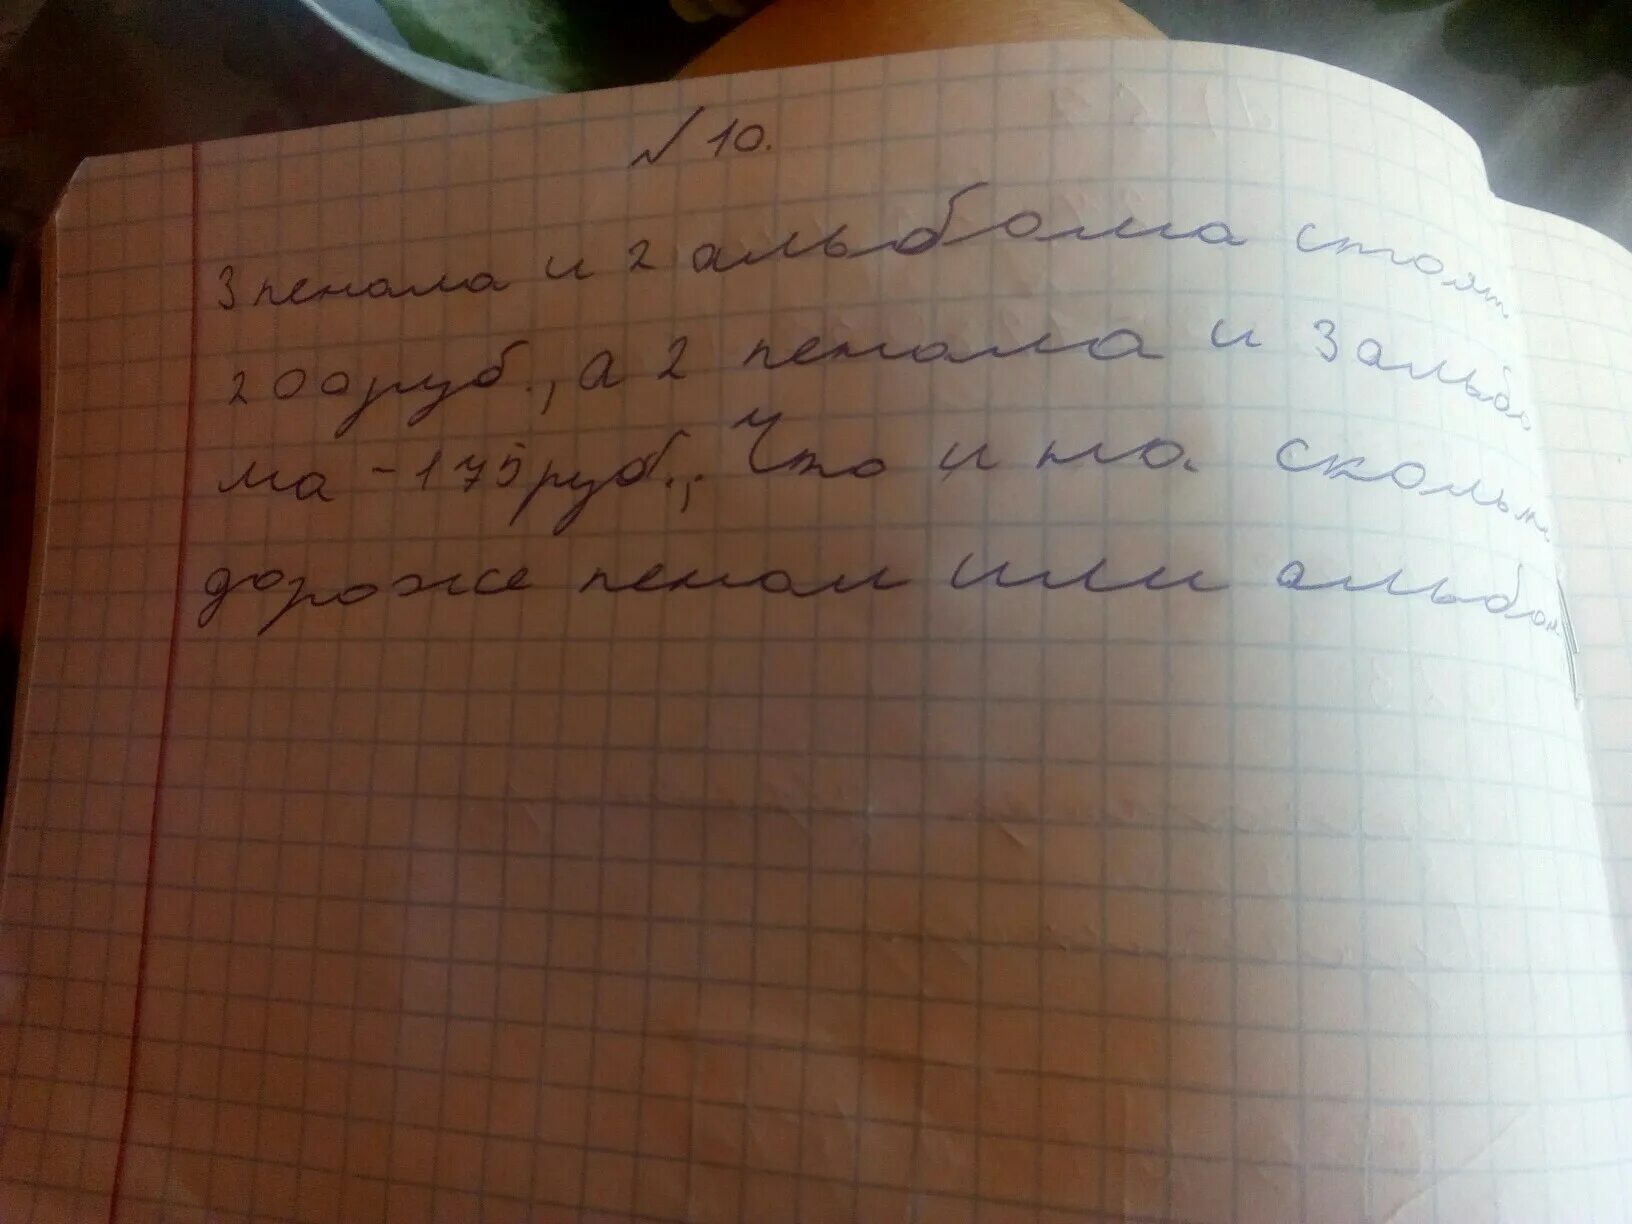 №10.
3 пенала и 2 альбома стоят
200руб., а 2 пенала и 3 альбо
ма - 175руб.,. Что и на сколько
дороже пенал или альбом